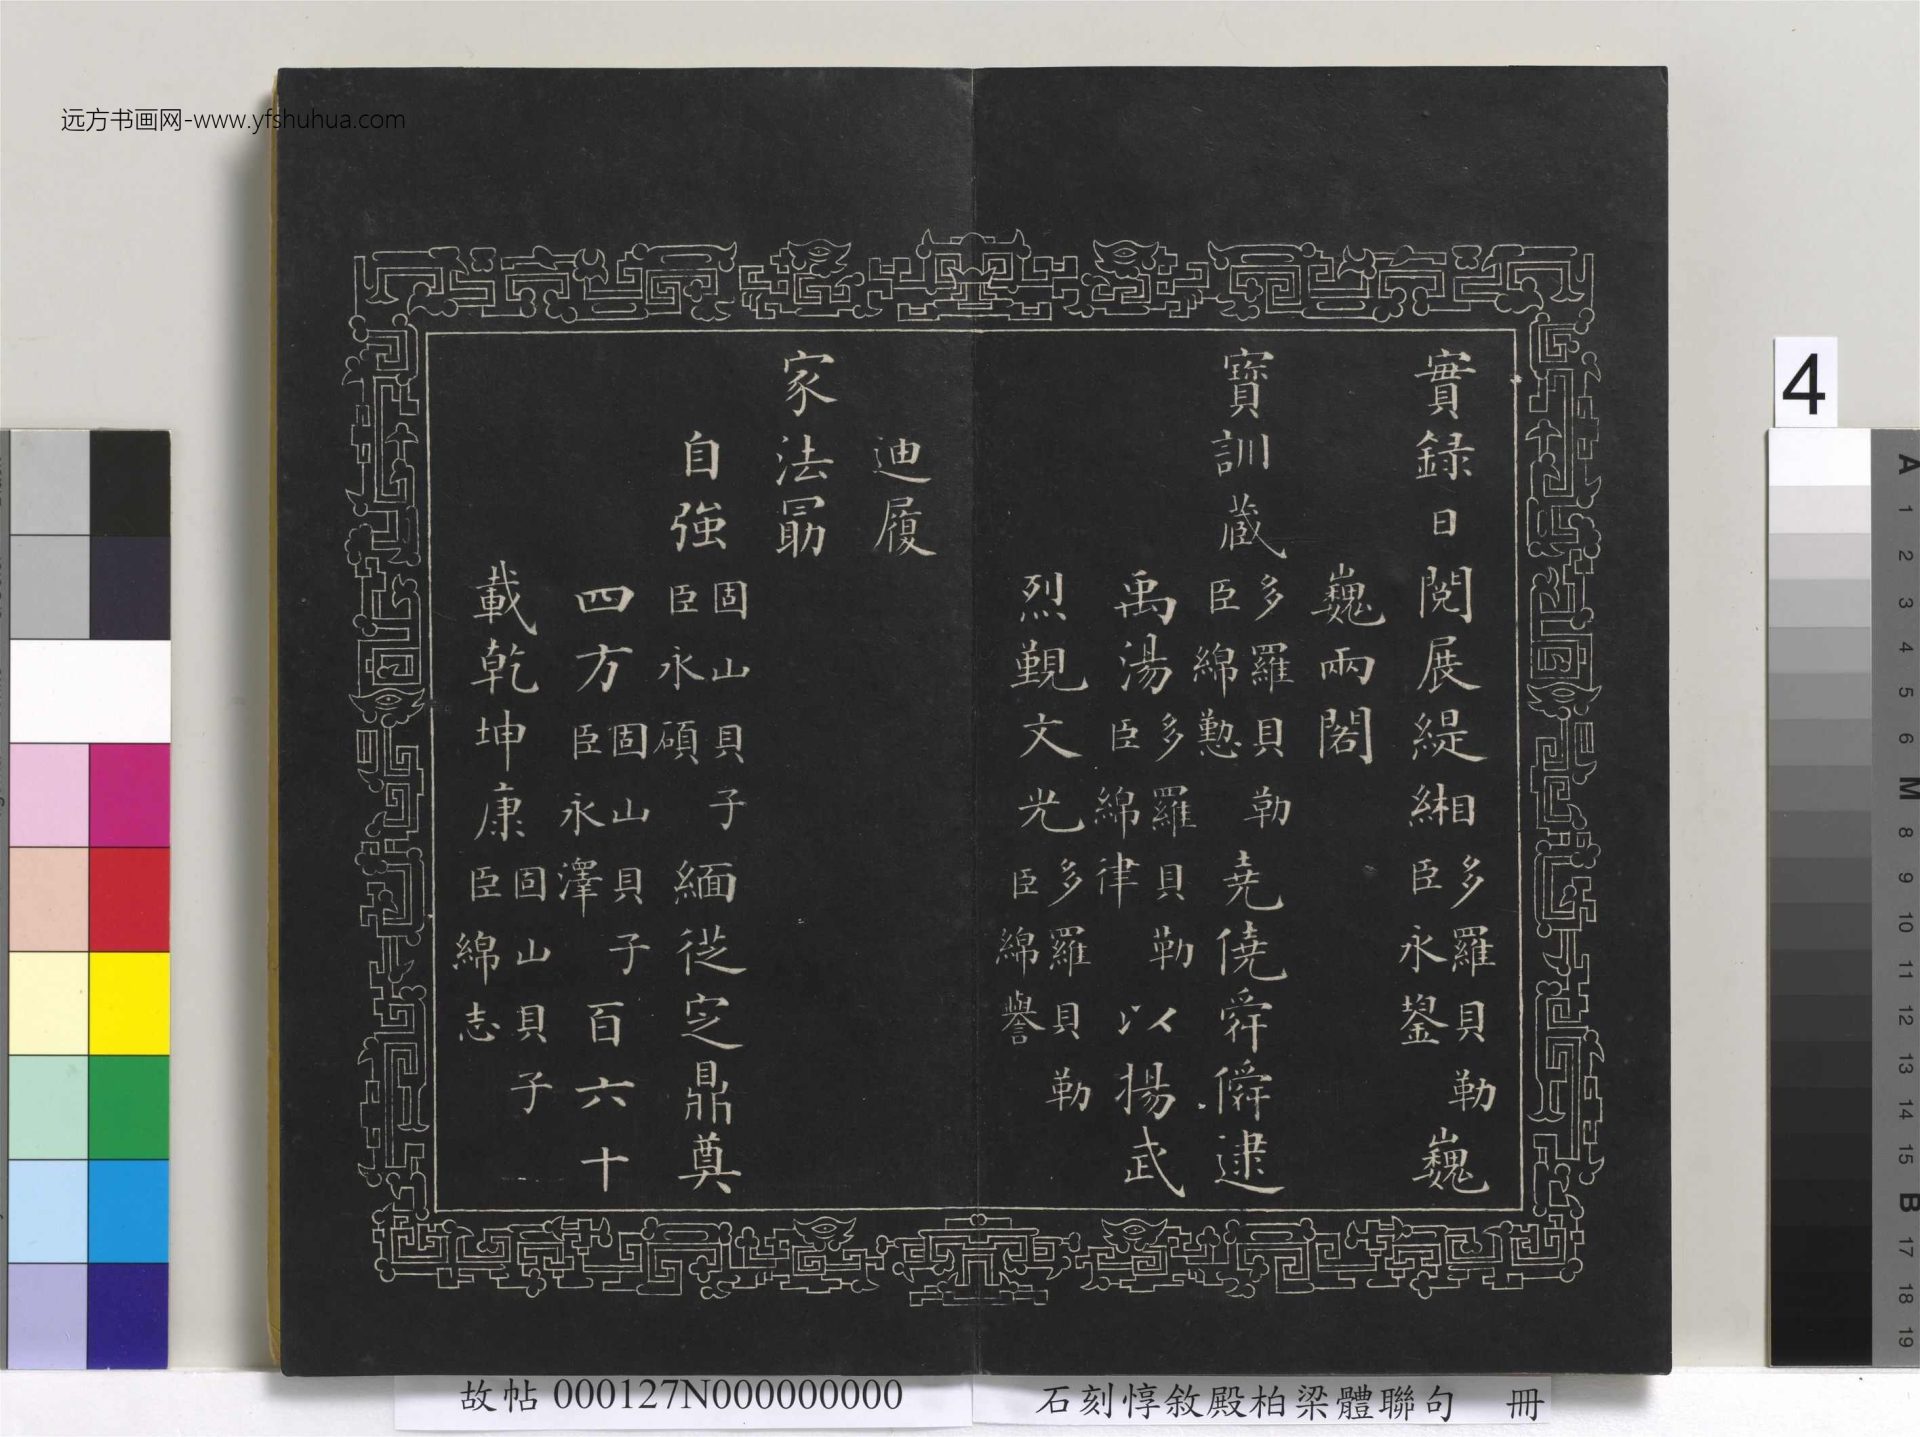 远方书画网-www.yfshuhua.com
實録日閱展緹緗 多羅貝勒臣永鋆 巍
巍兩閣
寶訓藏 多羅貝勒臣綿懃 堯僥舜僢逮
禹湯 多羅貝勒臣綿律 以揚武
烈覲文光 多羅貝勒臣綿譽
迪履
家法勗
自強 固山貝子臣永碩 緬從定鼎奠
四方 固山貝子臣永澤 百六十
載乾坤康 固山貝子臣綿志
4
A
1
2
3
4
5
6
M
8
9
10
11
12
13
14
15
B
17
18
19
故帖 000127N000000000
石刻惇敘殿柏梁體聯句 冊